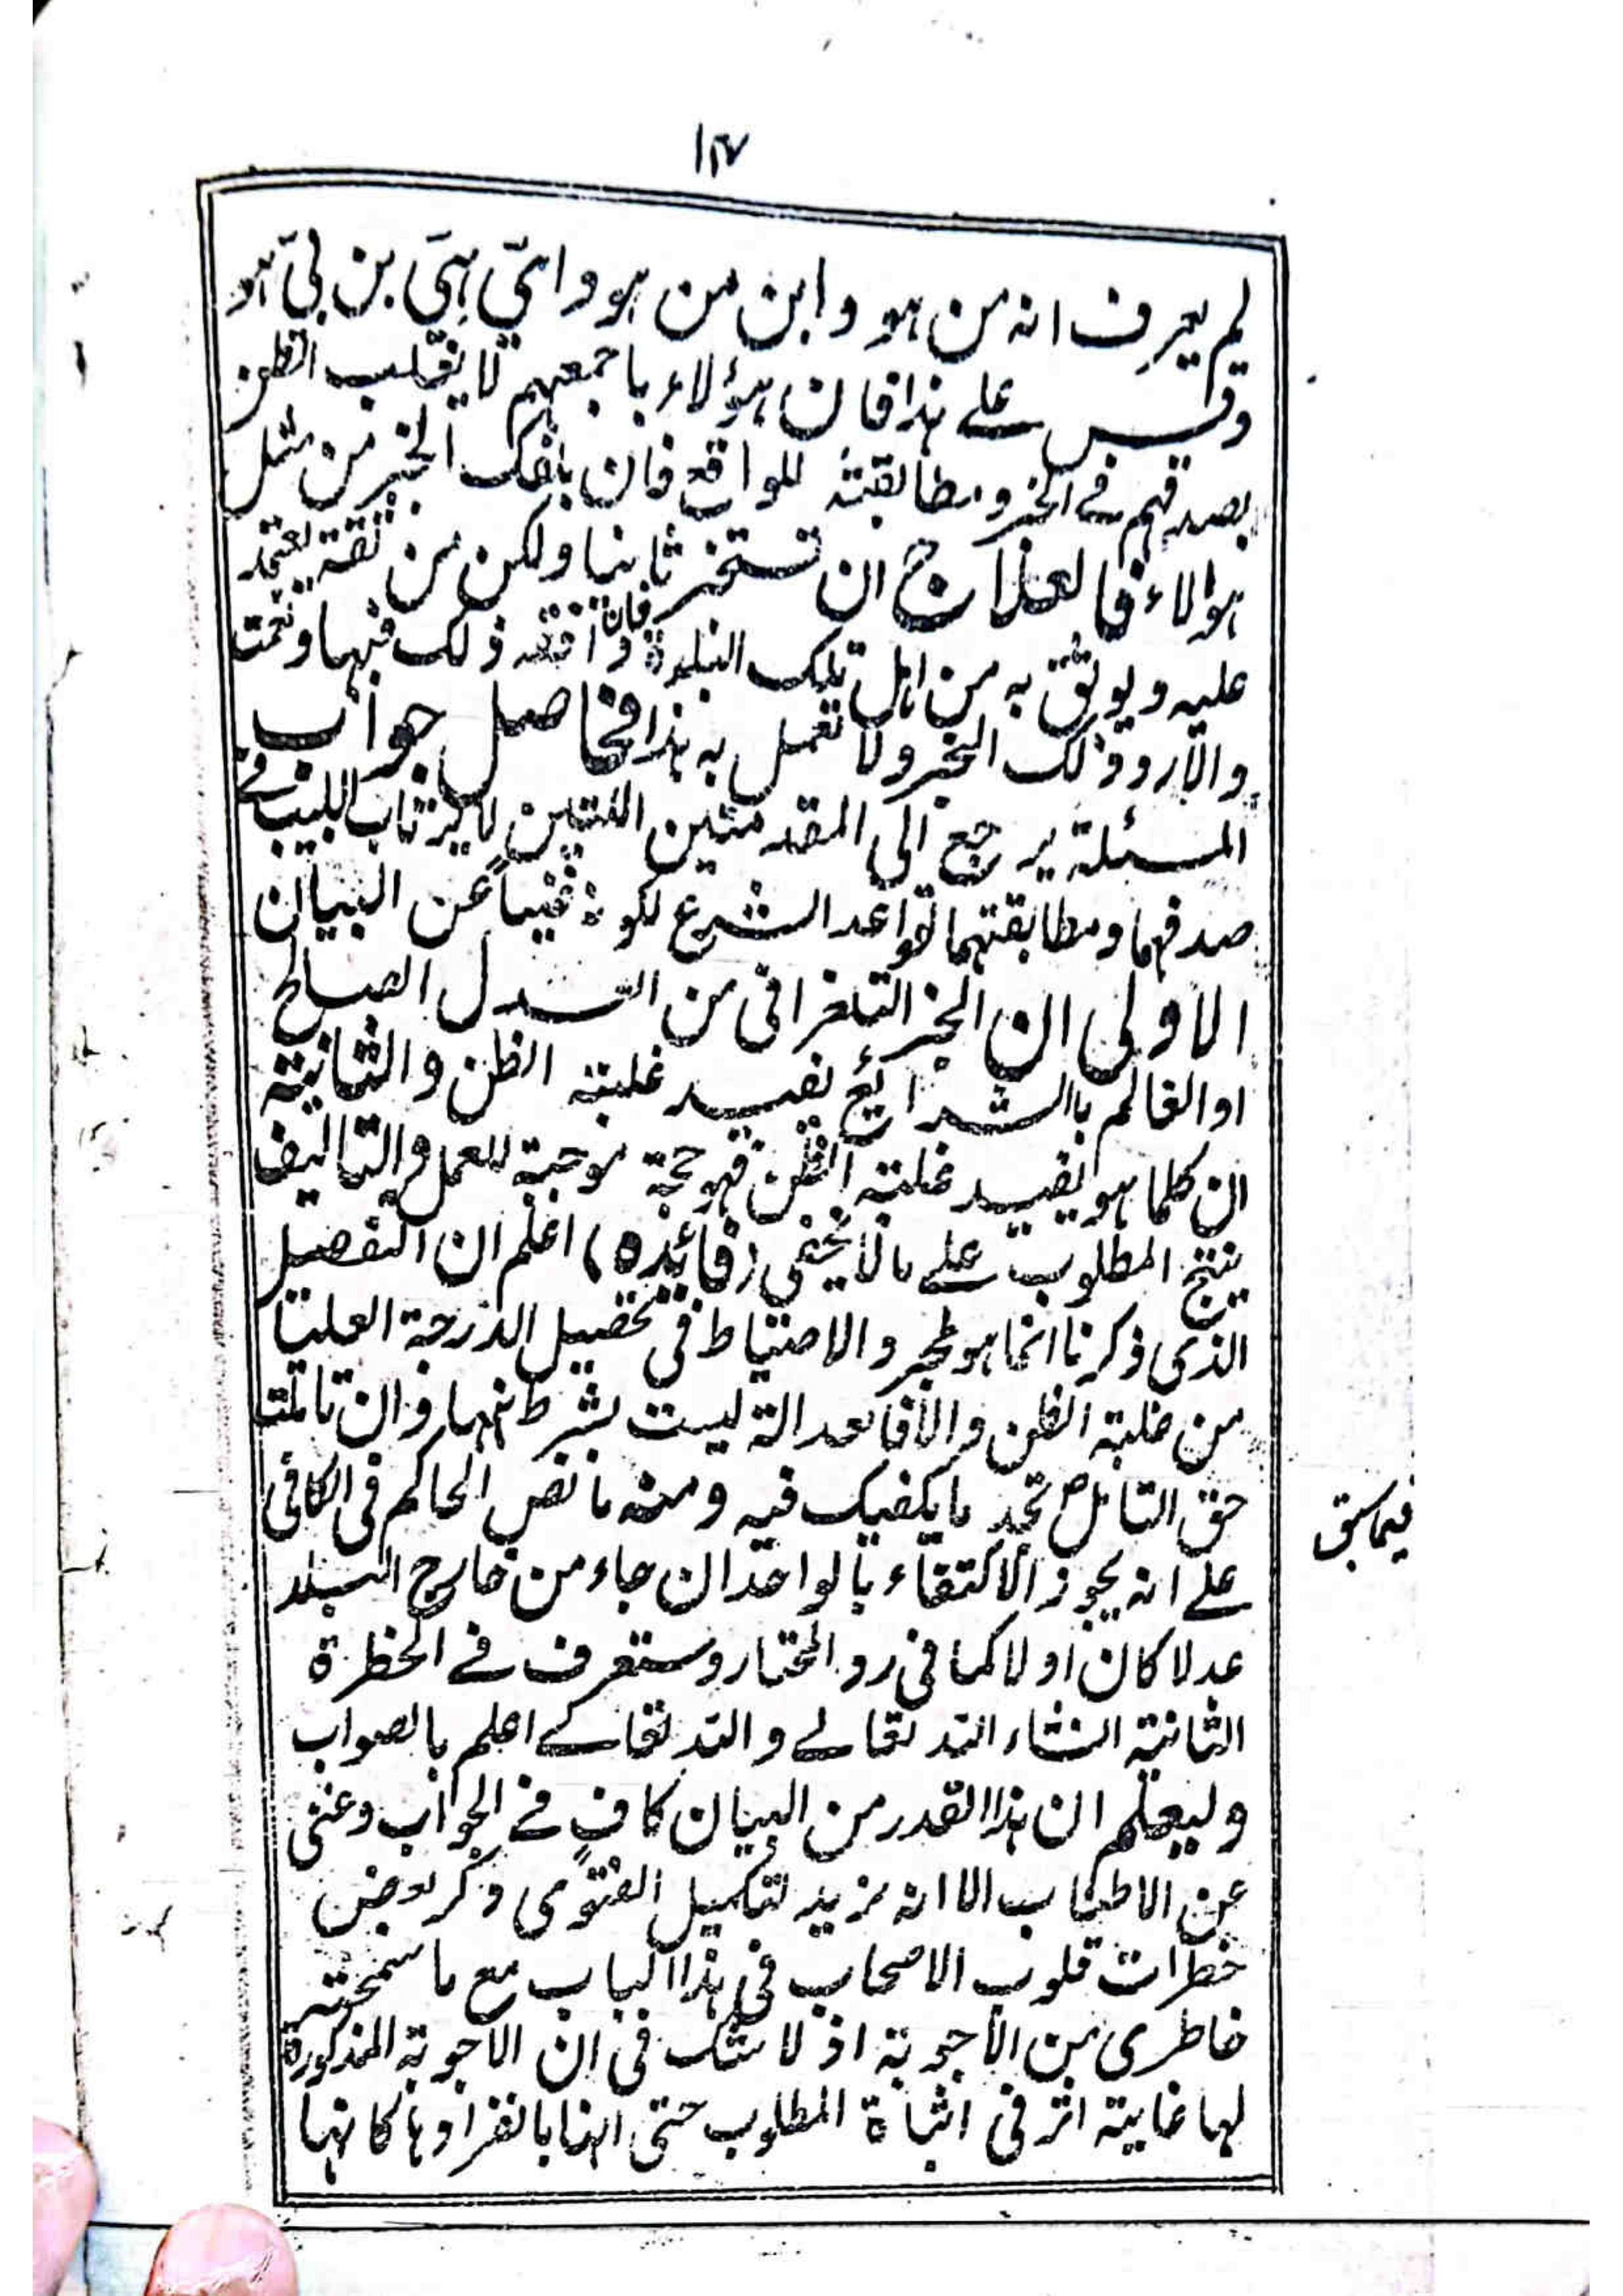 ۱۴۷
لم يعرف انه من هو وابن من هو وامي هي بن بي هو
وقس على هذا فان هؤلاء باجمعهم لا يغلب الظن
بصدقهم فى الخبر ومطابقته للواقع فان بلغك الخبر من مثل
هولاء فالعلاج ان تستخبر ثانيا ولكن من ثقة يعتمد
عليه ويوثق به من اهل تلك البلدة فان وافقه ذلك فبها ونعمت
والا رد ذلك الخبر ولا تعمل به هذا فحاصل جواب
المسئلة يرجع الى المقدمتين اللتين لا يرتاب اللبيب فى
صدقهما ومطابقتهما لقواعد الشرع لكونه غنياً عن البيان
الاولى ان الخبر التلغرافى من العدل الصالح
او العالم بالشرائع يفيد غلبة الظن والثانية
ان كلما هو يفيد غلبة الظن فهو حجة موجبة للعمل والتاليف
ينتج المطلوب على ما لا يخفى (فائده) اعلم ان التفصيل
الذى ذكرنا انما هو لمجرد الاحتياط فى تحصيل الدرجة العليا
من غلبة الظن والا فالعدالة ليست بشرط فيها وان تاملت
حق التامل تجد ما يكفيك فيه ومنه ما نص الحاكم فى الكافى
على انه يجوز الاكتفاء بالواحد ان جاء من خارج البلد
عدلا كان او لا كما فى رد المحتار وستعرف فى الخطرة
الثانية انشاء الله تعالى والله تعالى اعلم بالصواب
وليعلم ان هذا القدر من البيان كافٍ فى الجواب وغنى
عن الاطناب الا انه نزيد لتكميل الفتوى ذكر بعض
خطرات قلوب الاصحاب فى هذا الباب مع ما سمحته
خاطرى من الأجوبة اذ لا شك فى ان الاجوبة المذكورة
لها غاية اثر فى اثباة المطلوب حتى انها بانفرادها كانها
فيما سبق